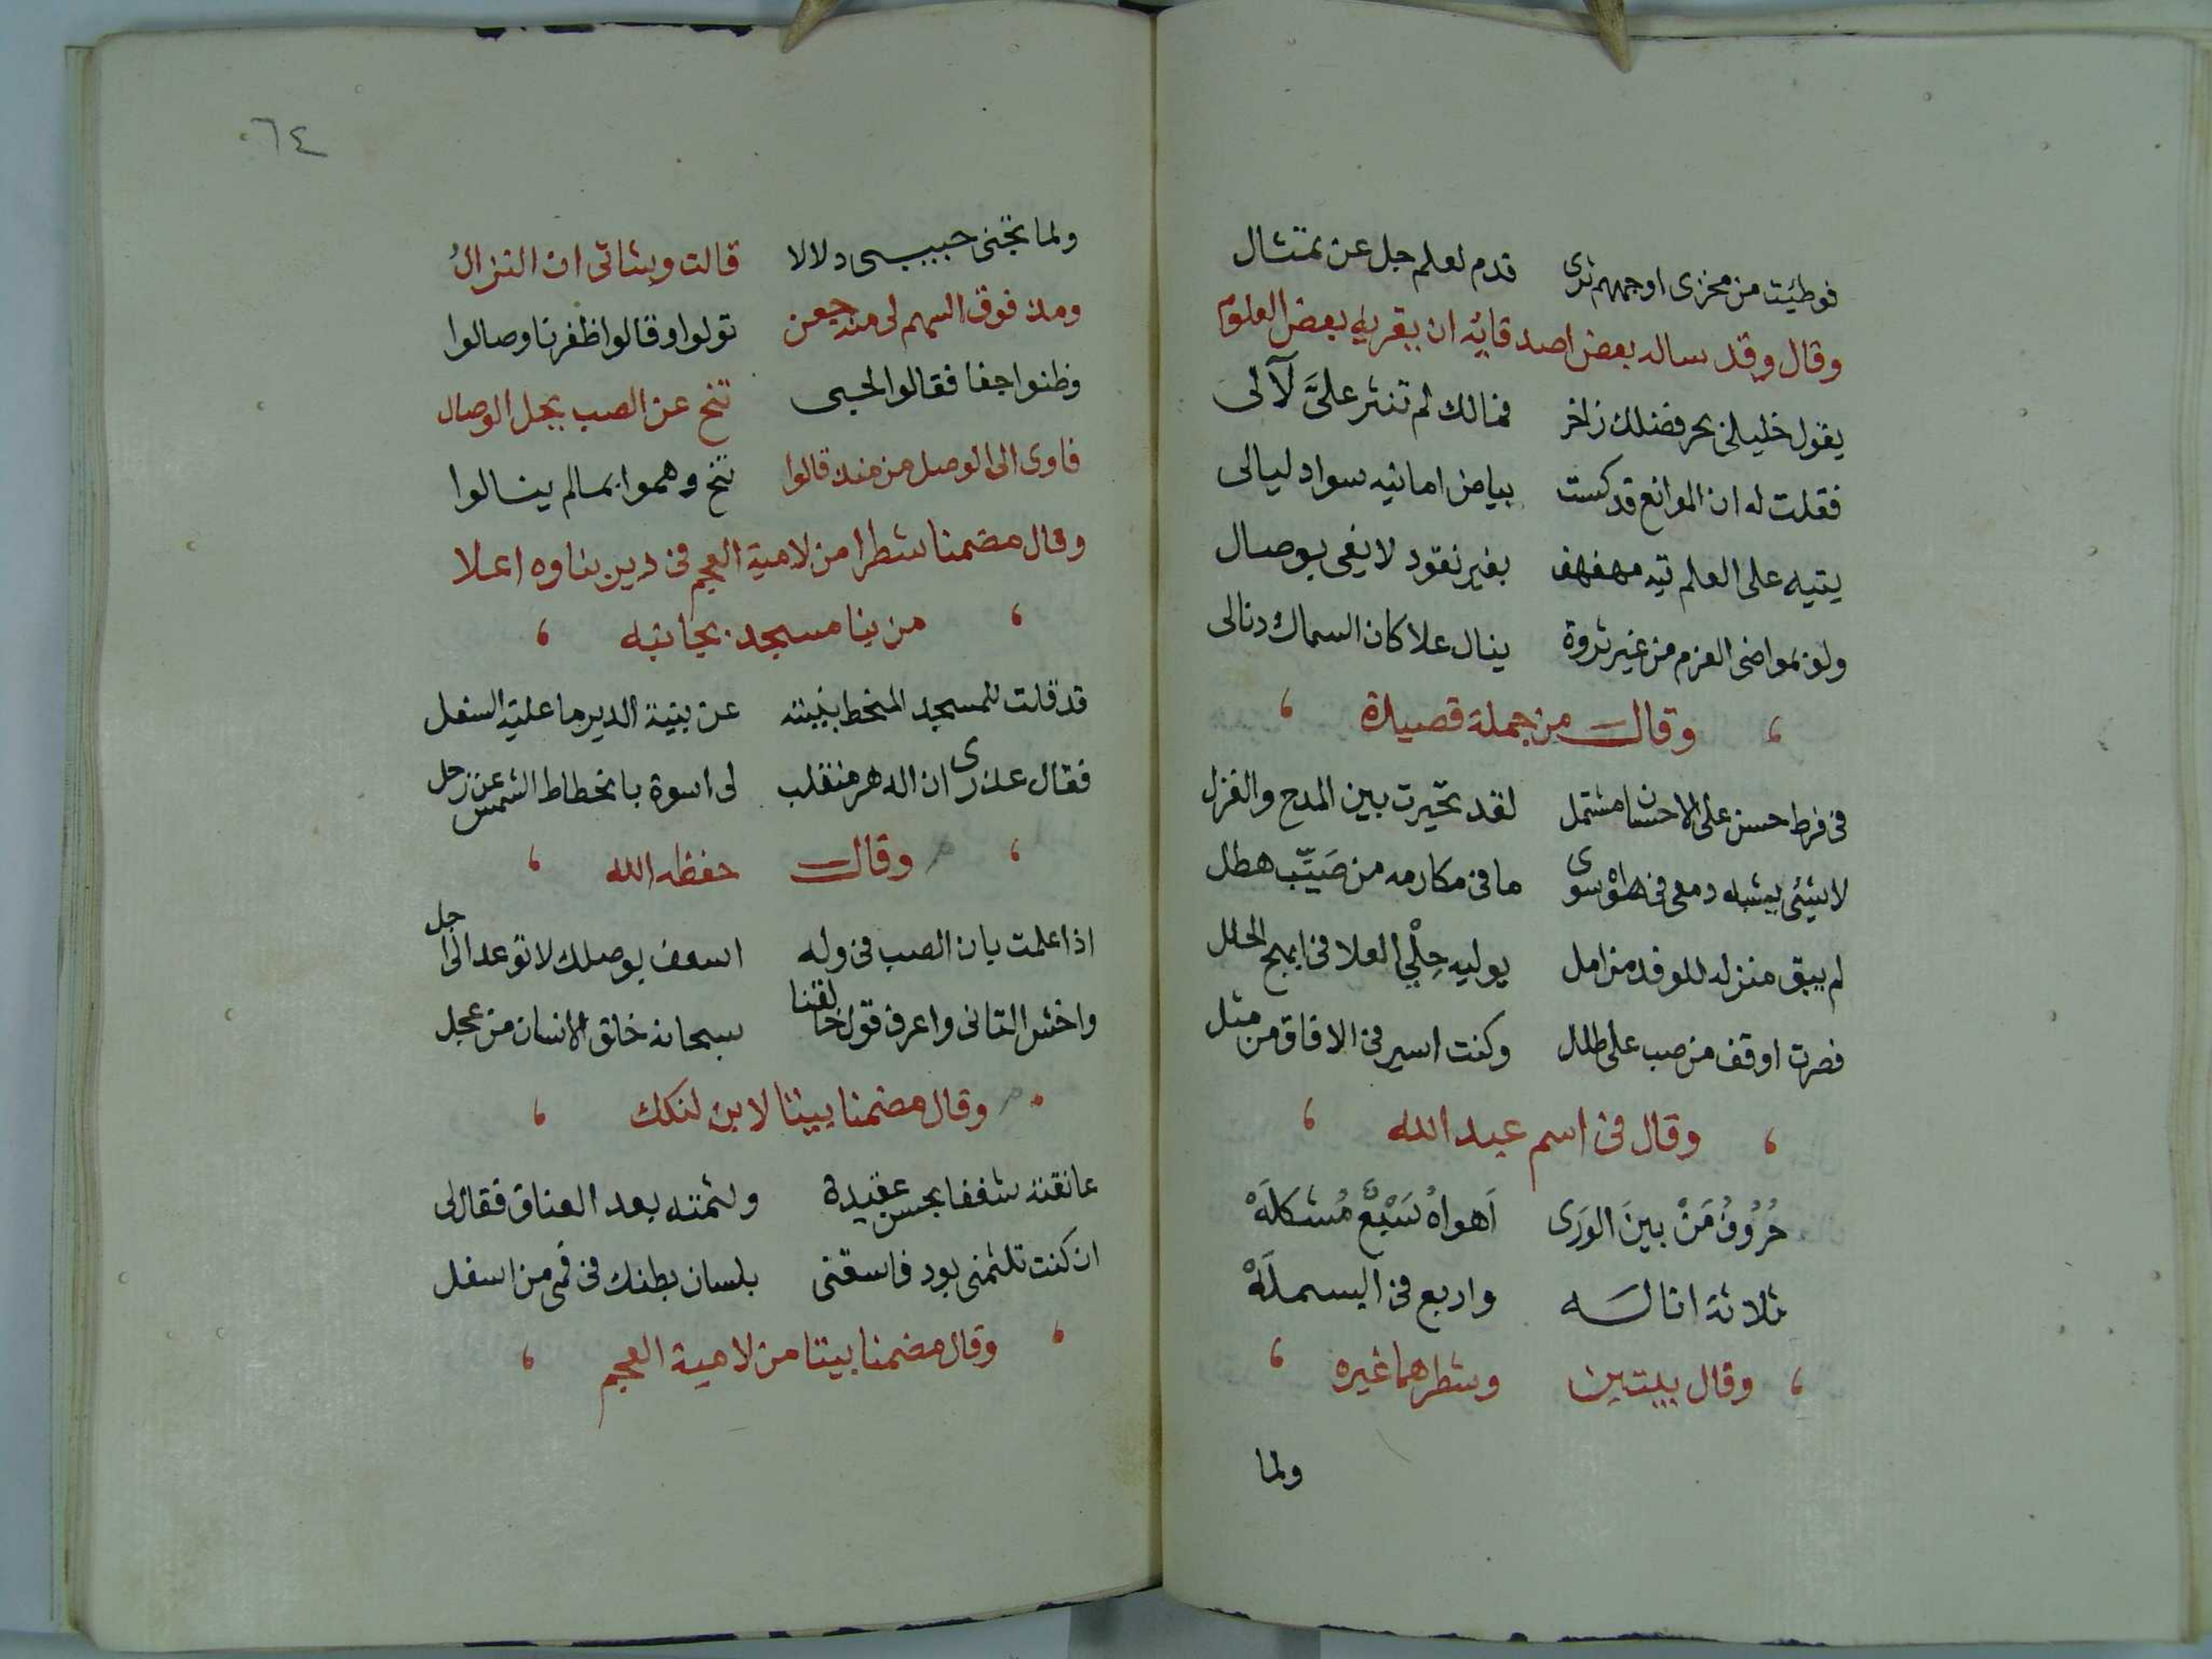 فوطئت من مخزى اوجههم ثرى قدم لعلم جل عن تمثال
وقال وقد ساله بعض اصدقائه ان يقريه بعض العلوم
يقول خليلى بحر فضلك زاخر فمالك لم تنثر علىَّ لآلى
فقلت له ان الموانع قد كست بياض امانيه سواد ليالى
يتيه على العلم تيه مهفهف بغير نقود لايفى بوصال
ولو بمواضى العزم من غير ثروة ينال علا كان السماك دنالى
وقال من جملة قصيدة
فى فرط حسن على الاحسان مشتمل لقد تحيرت بين المدح والغزل
لاشيئ يشبه دمعى فى هواه سوى مافى مكارمه من صَيّب هطل
لم يبق منزله للوفد من امل يوليه حِلْي العلا فى ابهج الحلل
فصرت اوقف من صب على طلل وكنت اسير فى الافاق من مثل
وقال فى اسم عبد الله
حُرُوفُ مَنْ بينَ الوَرَى اَهواهُ سَبْعٌ مُشكلَهْ
ثلاثة انا لسَه واربع فى البسملَهْ
وقال بيتين وشطرهما غيره
ولما
٦٤
ولما تجنى حبيبى دلالا قالت وشاتى ان النزالُ
ومذ فوق السهم لى منه جيعن تولوا وقالوا ظفرنا وصالوا
وظنوا جفا فقالوا لحبى تنح عن الصب يحل الوصال
فاوى الى الوصل من منذ قالوا تنح وهموا بمالم ينالوا
وقال مضمنا شطرا من لامية العجم فى دير بناوه اعلا
من بنا مسجد بجانبه
قد قلت للمسجد المنحط بنيته عن بنية الدير ما عليته السفل
فقال عذرى ان الدهر منقلب لى اسوة بانحطاط الشمس عن زحل
وقال حفظه الله
اذا علمت بان الصب فى وله اسعف بوصلك لا توعد الى اجل
واخش التانى واعرف قول خالقنا سبحانه خلق الانسان من عجل
وقال مضمنا بيتا لابن لنكك
عانقته شغفا بحسن عقيدة ولثمته بعد العناق فقال لى
ان كنت تلثمنى بود فاسقنى بلسان بطنك فى فمى من اسفل
وقال مضمنا بيتا من لامية العجم